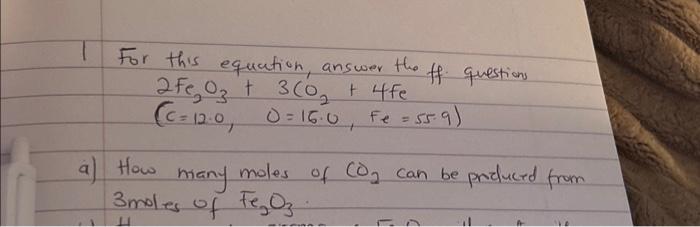 1 For this equation, answer the ff. questions
2Fe₂O₃ + 3CO₂ + 4Fe
(C = 12.0, O = 16.0, Fe = 55.9)
a) How many moles of CO₂ can be produced from
3moles of Fe₂O₃.